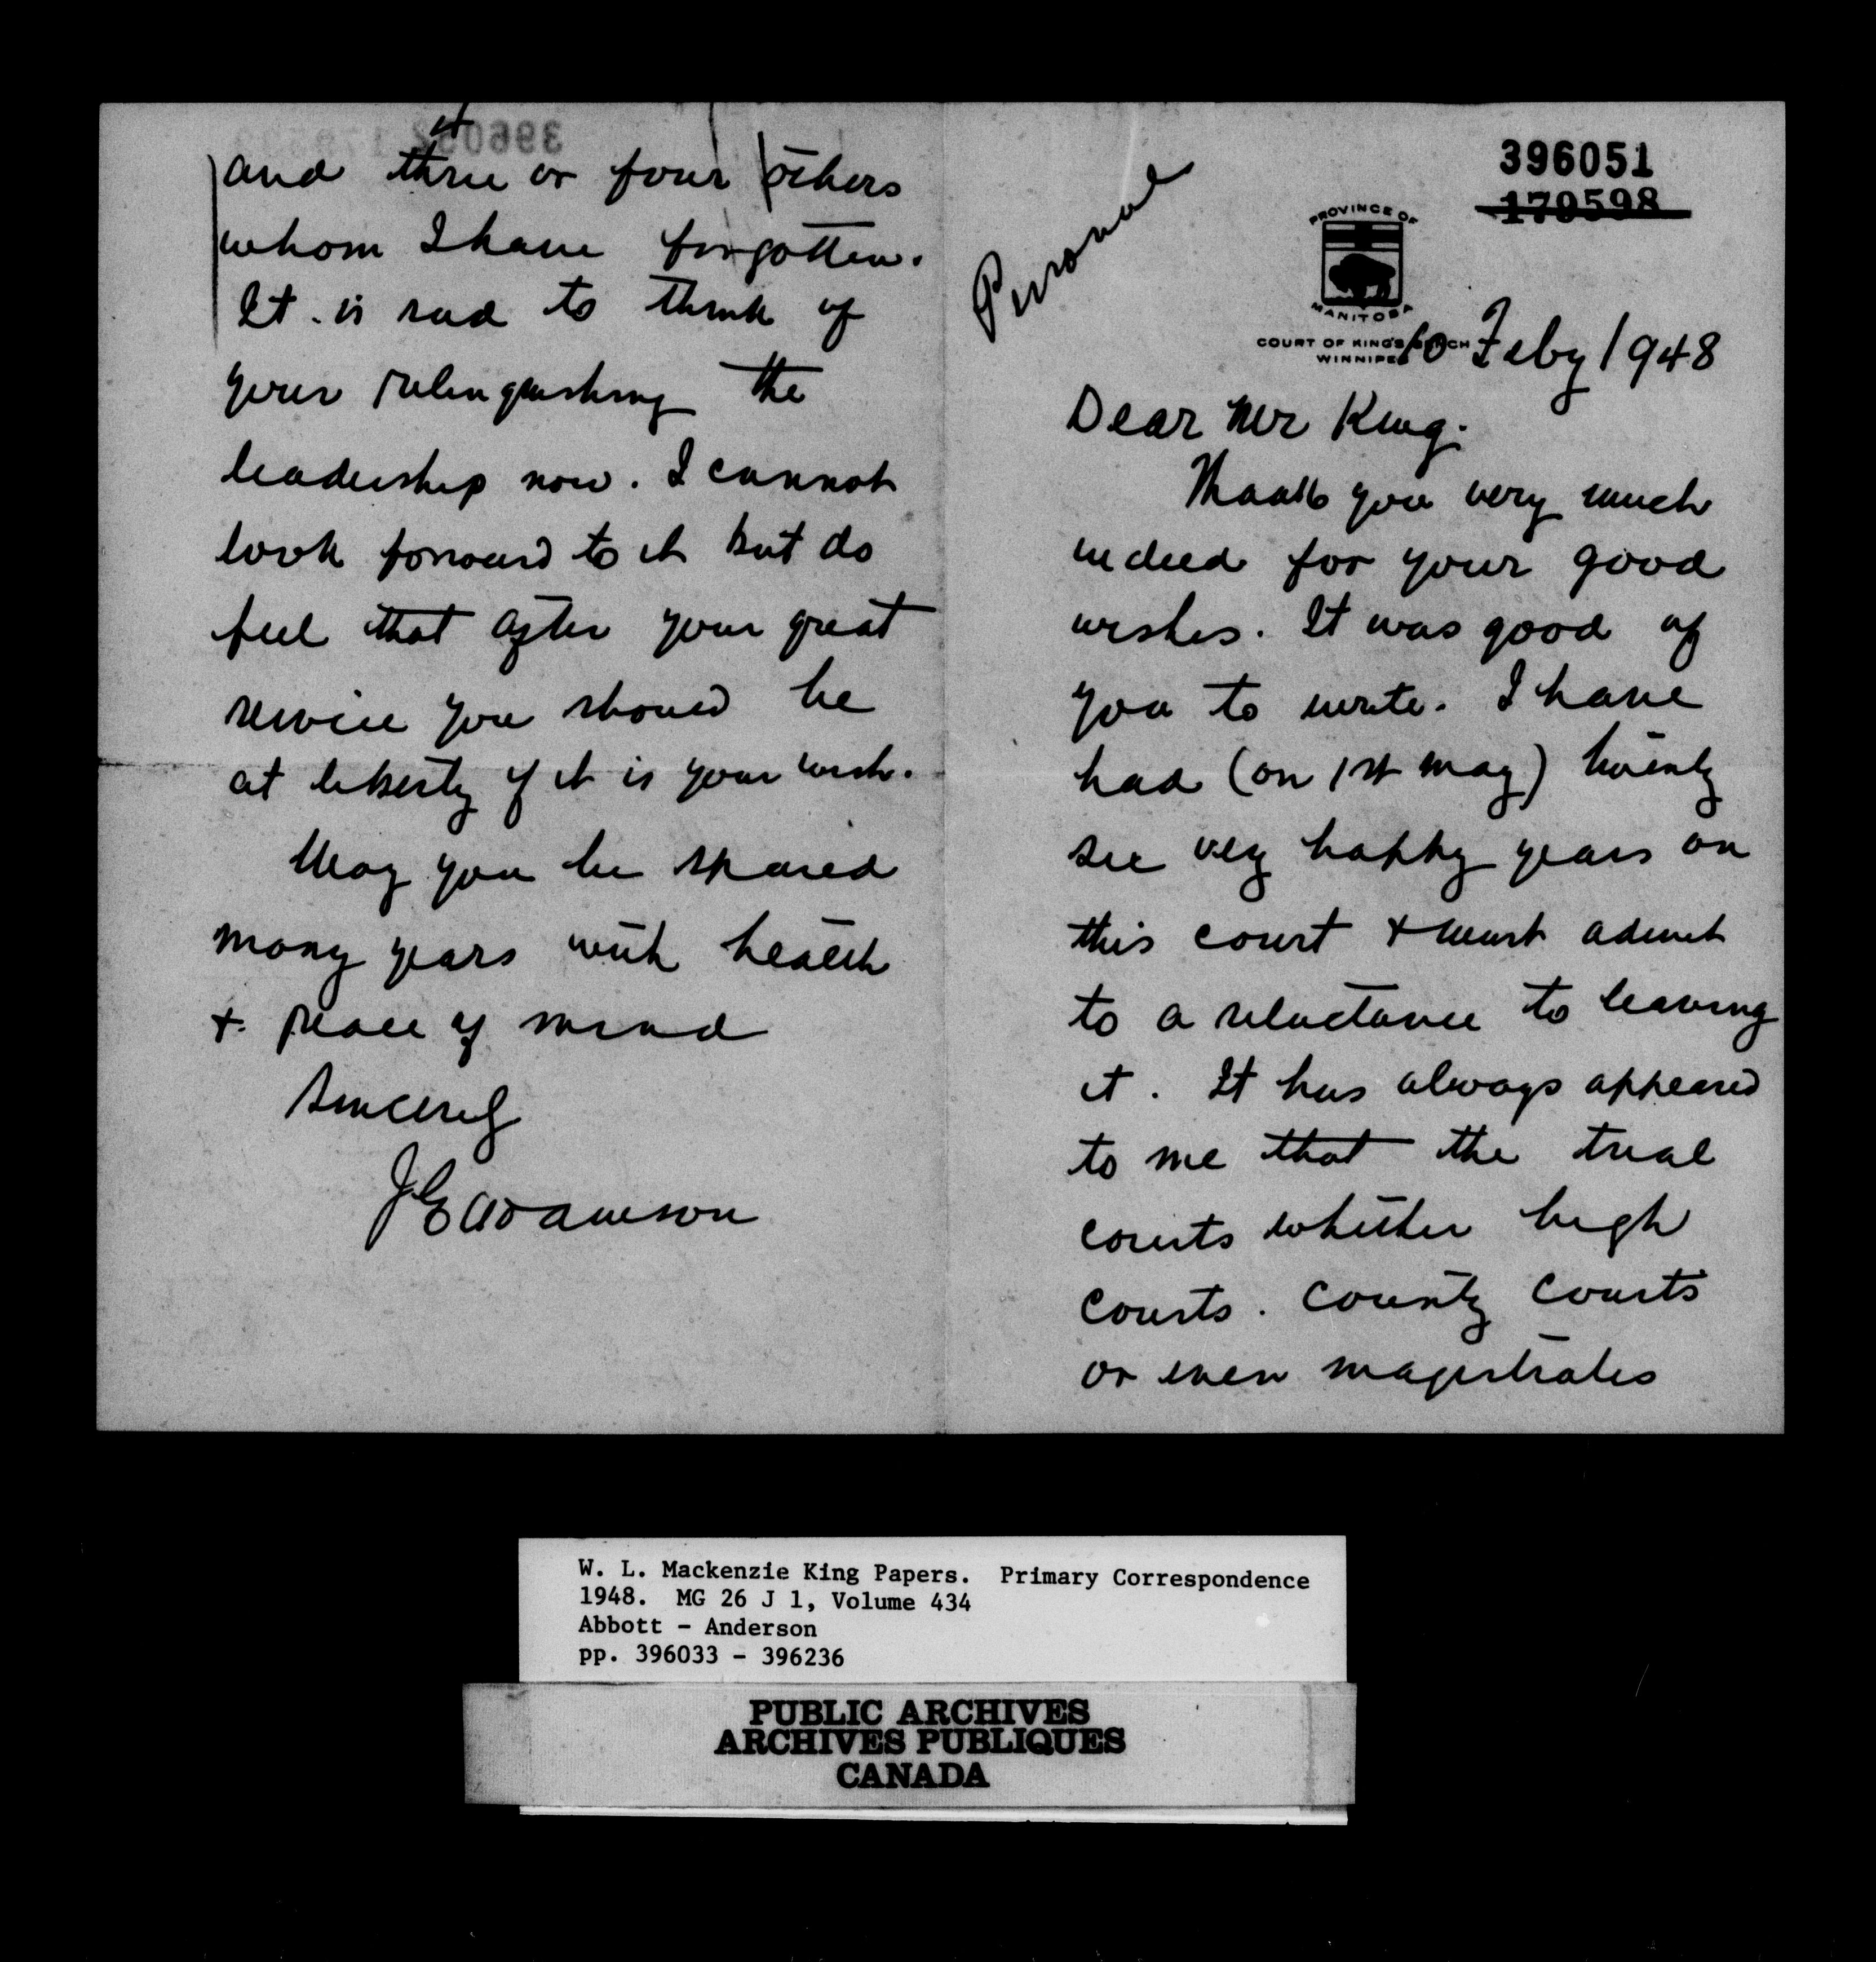 4
and three or four others
whom I have forgotten.
It is sad to think of
your relinquishing the
leadership now. I cannot
look forward to it but do
feel that after your great
service you should be
at liberty if it is your wish.
May you be spared
many years with health
+ peace of mind
Sincerely
J E Adamson
Personal
396051
179598
PROVINCE OF
MANITOBA
COURT OF KING'S BENCH
WINNIPEG
10 Feby 1948
Dear Mr King.
Thank you very much
indeed for your good
wishes. It was good of
you to write. I have
had (on 1st May) twenty
six very happy years on
this court + must admit
to a reluctance to leaving
it. It has always appeared
to me that the trial
courts whether high
courts. county courts
or even magistrates
W. L. Mackenzie King Papers. Primary Correspondence
1948. MG 26 J 1, Volume 434
Abbott - Anderson
pp. 396033 - 396236
PUBLIC ARCHIVES
ARCHIVES PUBLIQUES
CANADA